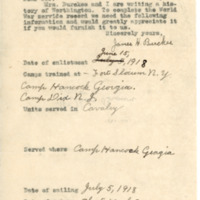 Mrs. Burckes and I are writing a his-
tory of Worthington. To complete the World
War service record we need the following
information and would greatly appreciate it
if you would furnish it to us.
Sincerely yours,
James H Burckes
June 15,
Date of enlistment 1918
Camps trained at - Fort Slocum N.Y.
Camp Hancock Georgia,
Camp Dix N.J.
Units served in Cavalry
Served where Camp Hancock Georgia
Date of sailing July 5, 1918